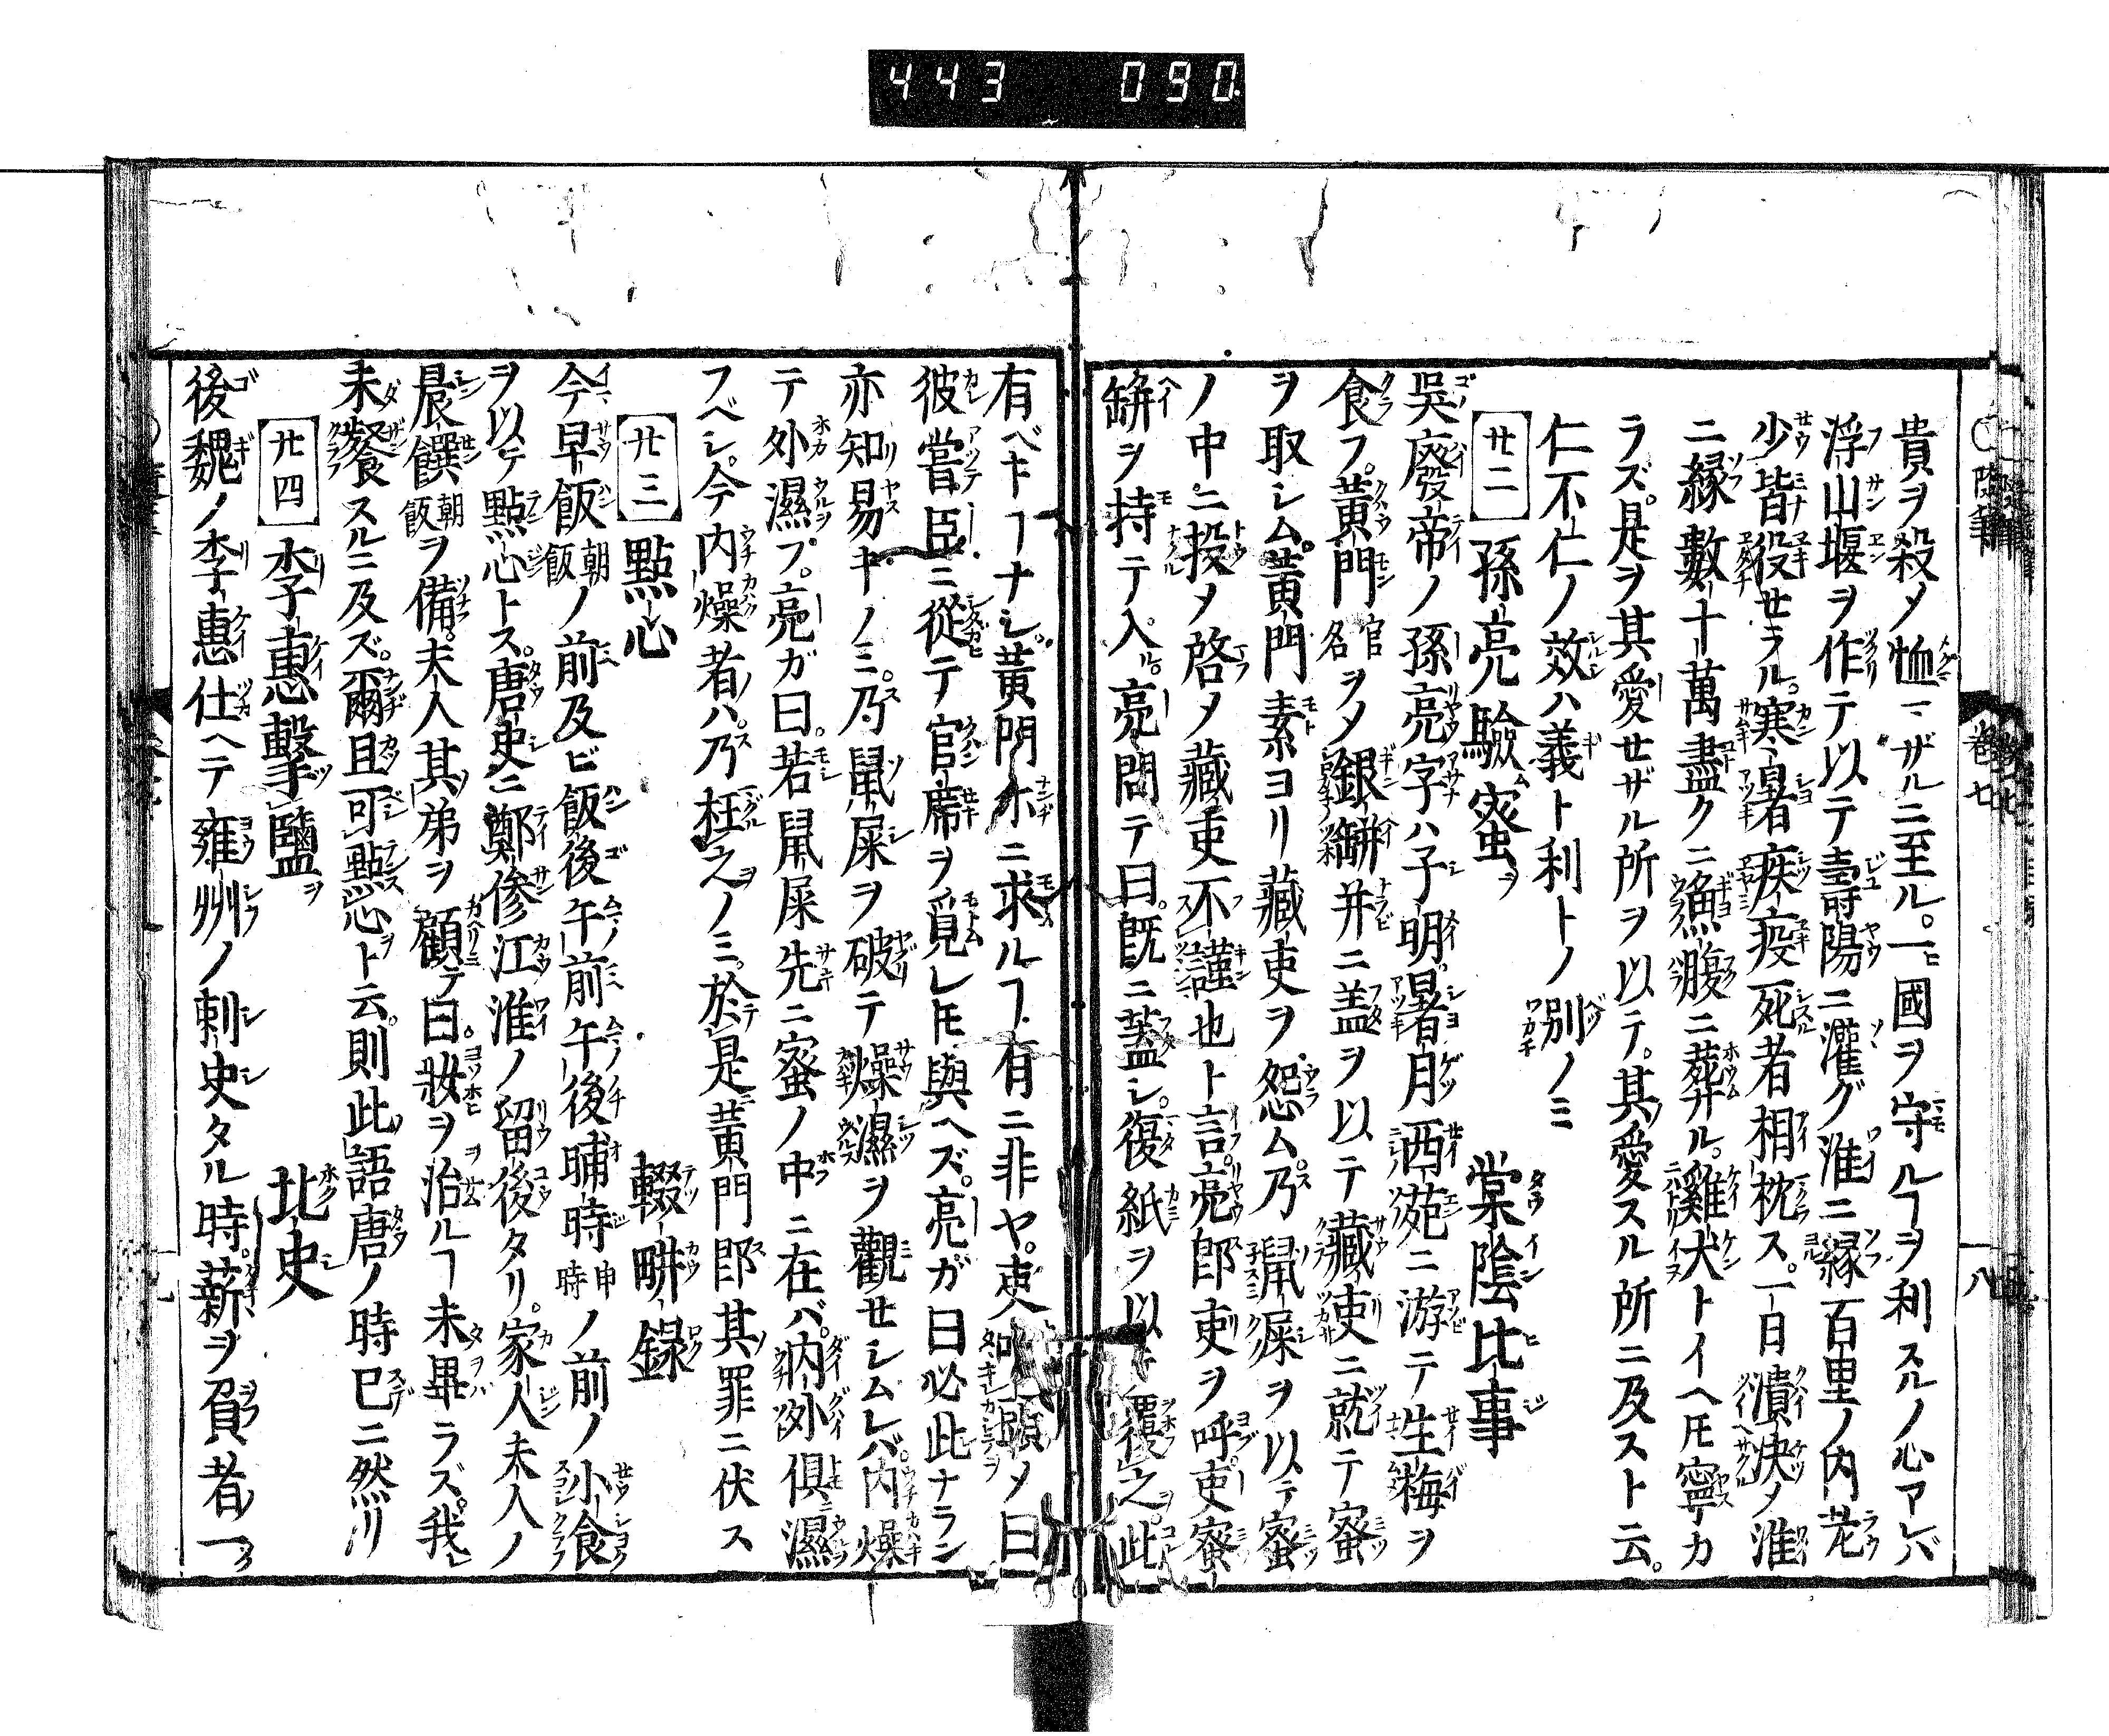 443 090
貴ヲ殺メ恤ミザルニ至ル。一國ヲ守ルヿヲ利スルノ心アレバ
浮山堰ヲ作テ以テ壽陽ニ灌グ淮ニ縁百里ノ内老
少皆役セラル。寒暑疾疫死者相枕ス。一日潰决ノ淮
ニ縁數十萬盡クニ魚腹ニ葬ル。雞犬トイヘ𪜈寧カ
ラズ。是ヲ其愛セザル所ヲ以テ。其愛スル所ニ及スト云。
仁不仁ノ效ハ義ト利トノ別ノミ
廿二 孫亮驗蜜ヲ 棠陰比事
吳廢帝ノ孫亮字ハ子明暑月西苑ニ游テ生梅ヲ
食フ。黃門官名ヲメ銀缾并ニ盖ヲ以テ藏吏ニ就テ蜜
ヲ取シム。黃門素ヨリ藏吏ヲ怨ム。乃鼠屎ヲ以テ蜜
ノ中ニ投メ啓メ藏吏不謹也ト言。亮即吏ヲ呼吏蜜
缾ヲ持テ入。亮問テ曰。既ニ蓋シ。復紙ヲ以テ覆之。此
有ベキヿナシ。黃門尓ニ求ルヿ有ニ非ヤ。吏叩頭メ曰
彼嘗臣ニ從テ官席ヲ覓レ𪜈與ヘズ。亮ガ曰必此ナラン
亦知易キノミ。乃鼠屎ヲ破テ燥濕ヲ觀セシムレバ内燥
テ外濕フ。亮ガ曰。若鼠屎先ニ蜜ノ中ニ在バ。内外俱ニ濕
フベシ。今内燥者ハ。乃枉之ノミ。於是黃門即其罪ニ伏ス
廿三 點心 輟畊錄
今早飯朝飯ノ前及ビ飯後午前午後晡時申時ノ前ノ小食
ヲ以テ點心トス。唐史ニ鄭傪江淮ノ留後タリ。家人夫人ノ
晨饌朝飯ヲ備。夫人其弟ヲ顧テ曰。妝ヲ治ルヿ未畢ラズ。我
未餐スルニ及ズ。爾且可點心ト云。則此語唐ノ時已ニ然リ
廿四 李惠擊鹽ヲ 北史
後魏ノ李惠仕ヘテ雍州ノ刺史タル時。薪ヲ負者一